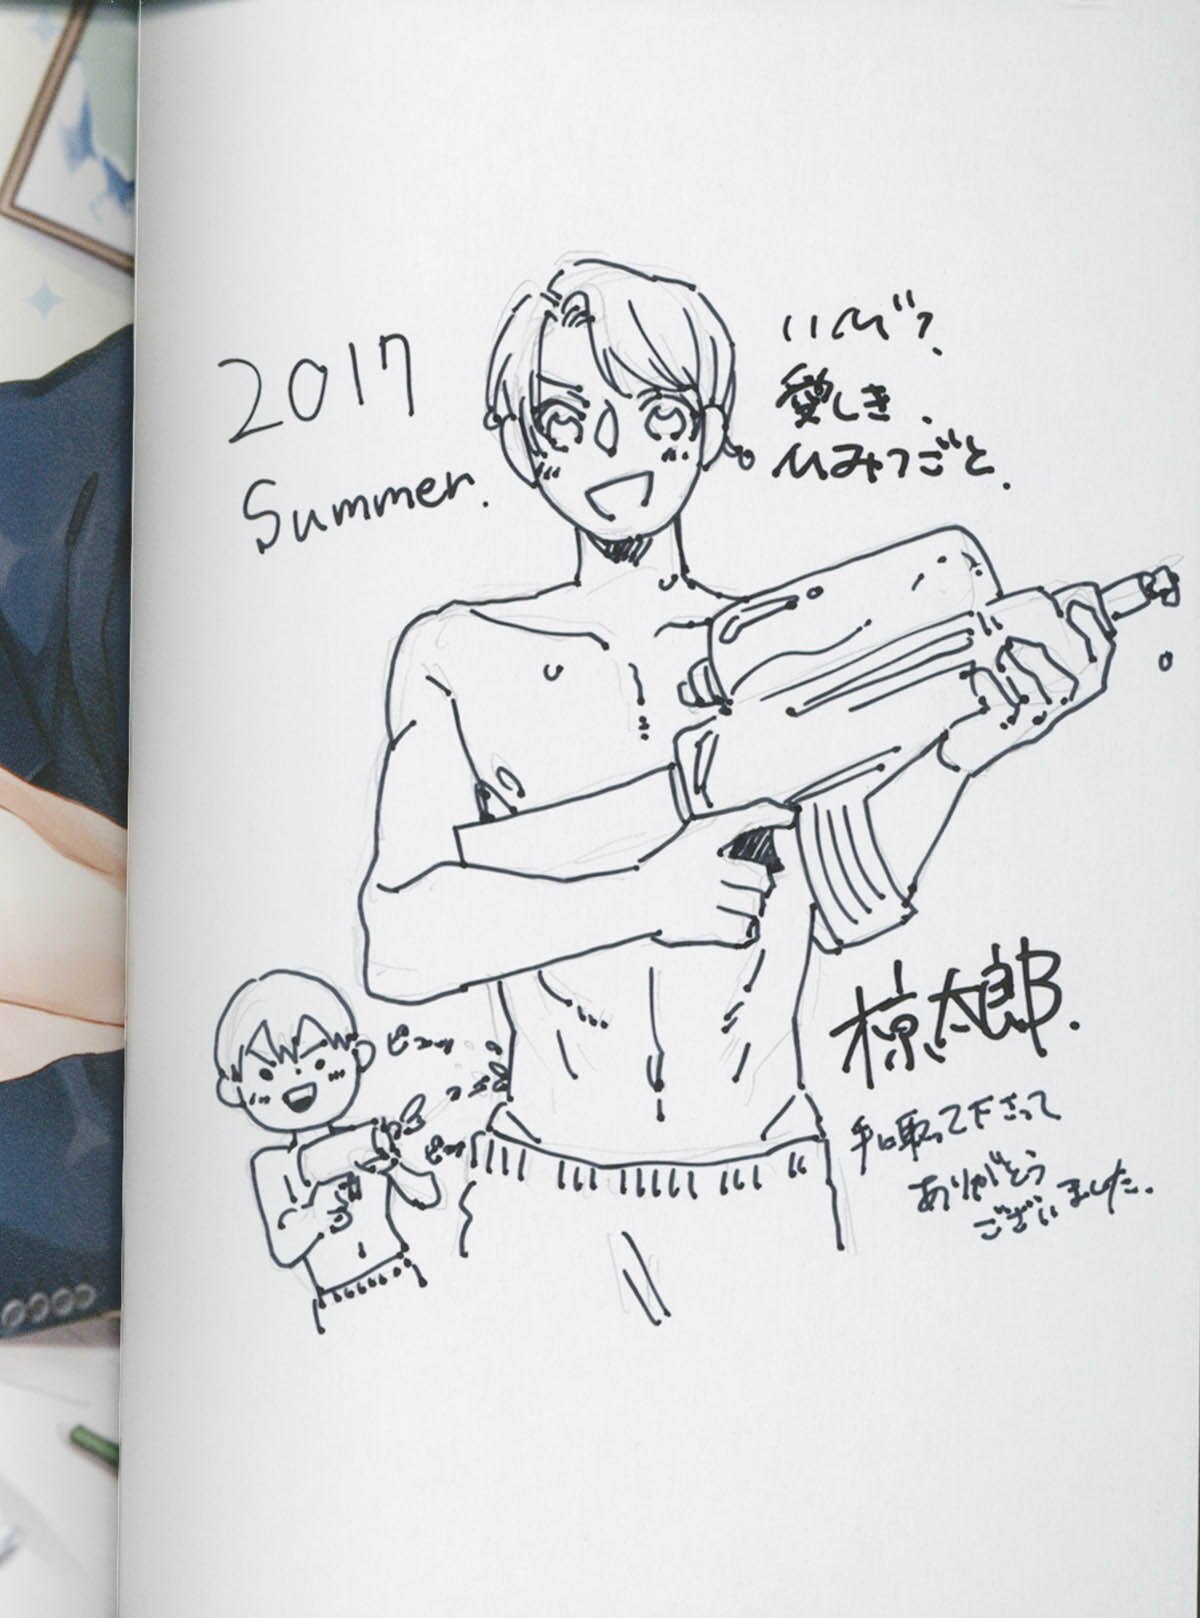 2017
Summer.
いびつ、
愛しき、
ひみつごと.
ピューッ
椋太郎.
手に取って下さって
ありがとう
ございました.